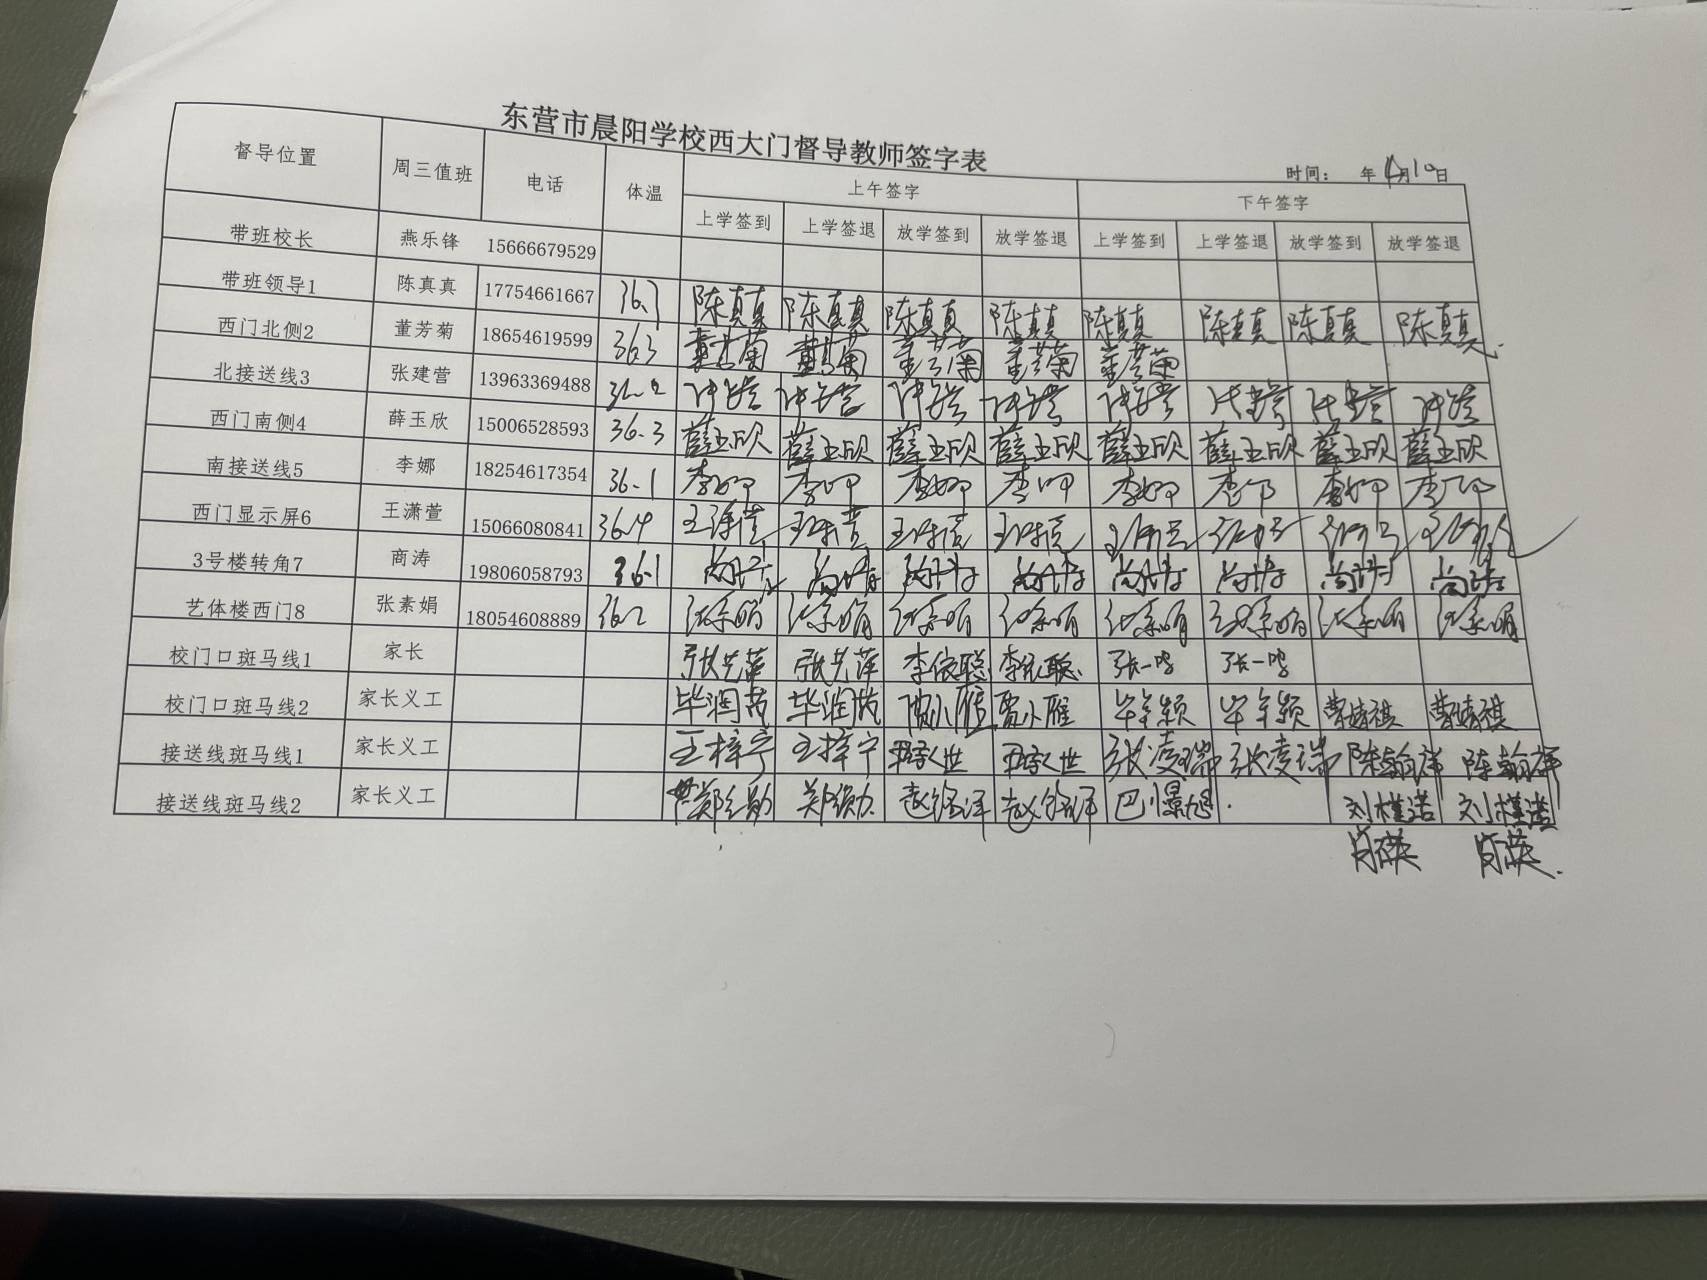 东营市晨阳学校西大门督导教师签字表
时间： 年4月10日
督导位置 周三值班 电话 体温 上午签字 下午签字
上学签到 上学签退 放学签到 放学签退 上学签到 上学签退 放学签到 放学签退
带班校长 燕乐锋 15666679529
带班领导1 陈真真 17754661667 36.7 陈真真 陈真真 陈真真 陈真真 陈真真 陈真真 陈真真 陈真真
西门北侧2 董芳菊 18654619599 36.3 董芳菊 董芳菊 董芳菊 董芳菊 董芳菊
北接送线3 张建营 13963369488 36.2 张建营 张建营 张建营 张建营 张建营 张建营 张建营 张建营
西门南侧4 薛玉欣 15006528593 36.3 薛玉欣 薛玉欣 薛玉欣 薛玉欣 薛玉欣 薛玉欣 薛玉欣 薛玉欣
南接送线5 李娜 18254617354 36.1 李娜 李娜 李娜 李娜 李娜 李娜 李娜 李娜
西门显示屏6 王潇萱 15066080841 36.4 王潇萱 王潇萱 王潇萱 王潇萱 王潇萱 王潇萱 王潇萱 王潇萱
3号楼转角7 商涛 19806058793 36.1 商涛 商涛 商涛 商涛 商涛 商涛 商涛 商涛
艺体楼西门8 张素娟 18054608889 36.2 张素娟 张素娟 张素娟 张素娟 张素娟 张素娟 张素娟 张素娟
校门口斑马线1 家长 张艺萍 张艺萍 李依聪 李依聪 张一 张一
校门口斑马线2 家长义工 毕润茂 毕润茂 贾小雁 贾小雁 毕颖 毕颖 曹祺 曹祺
接送线斑马线1 家长义工 王梓宁 王梓宁 世 世 张凌瑞 张凌瑞 陈翰祥 陈翰祥
接送线斑马线2 家长义工 郑勋 郑勋 赵铭洋 赵铭洋 巴旭 刘槿诺 刘槿诺
肖祺 肖祺